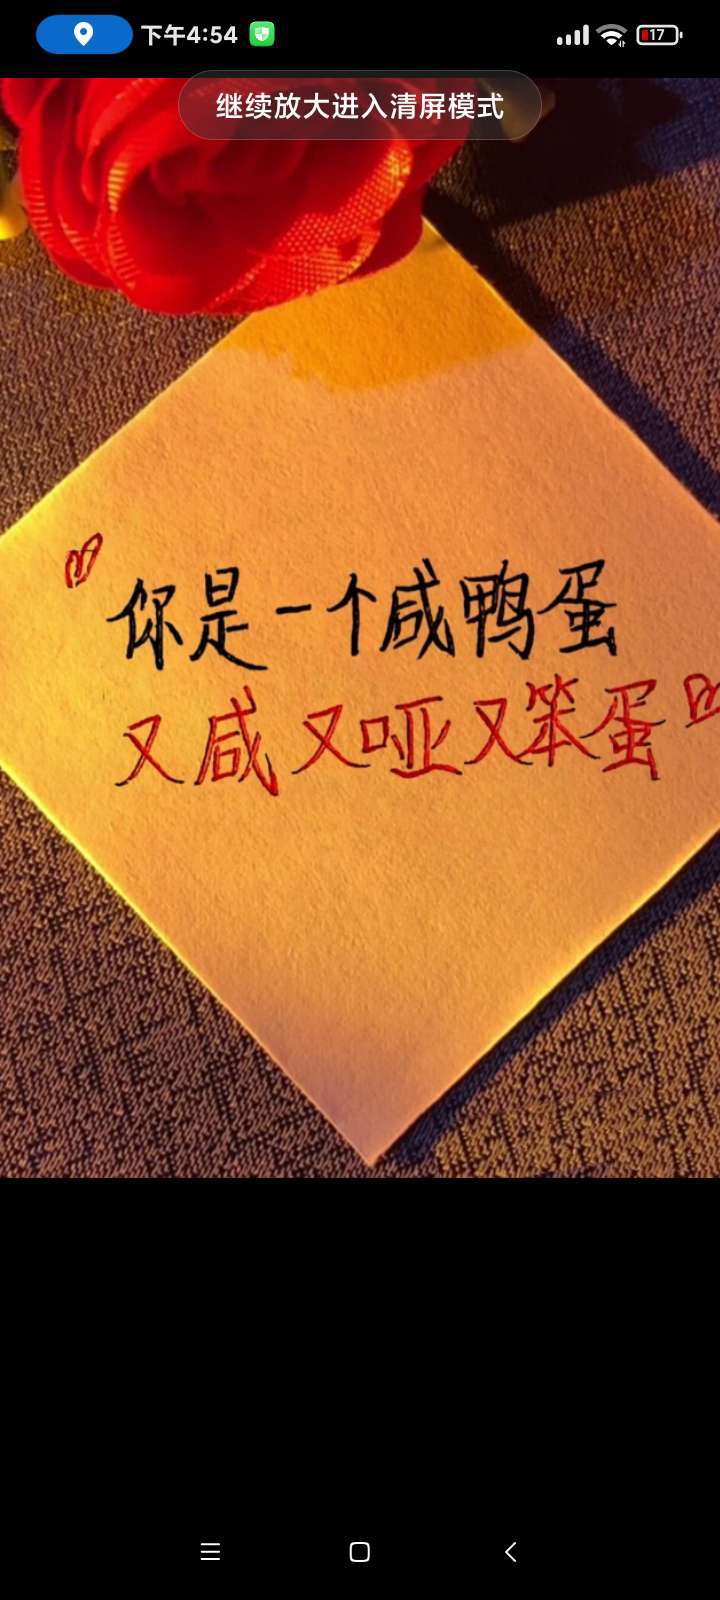 下午4:54
17
继续放大进入清屏模式
你是一个咸鸭蛋
又咸又哑又笨蛋